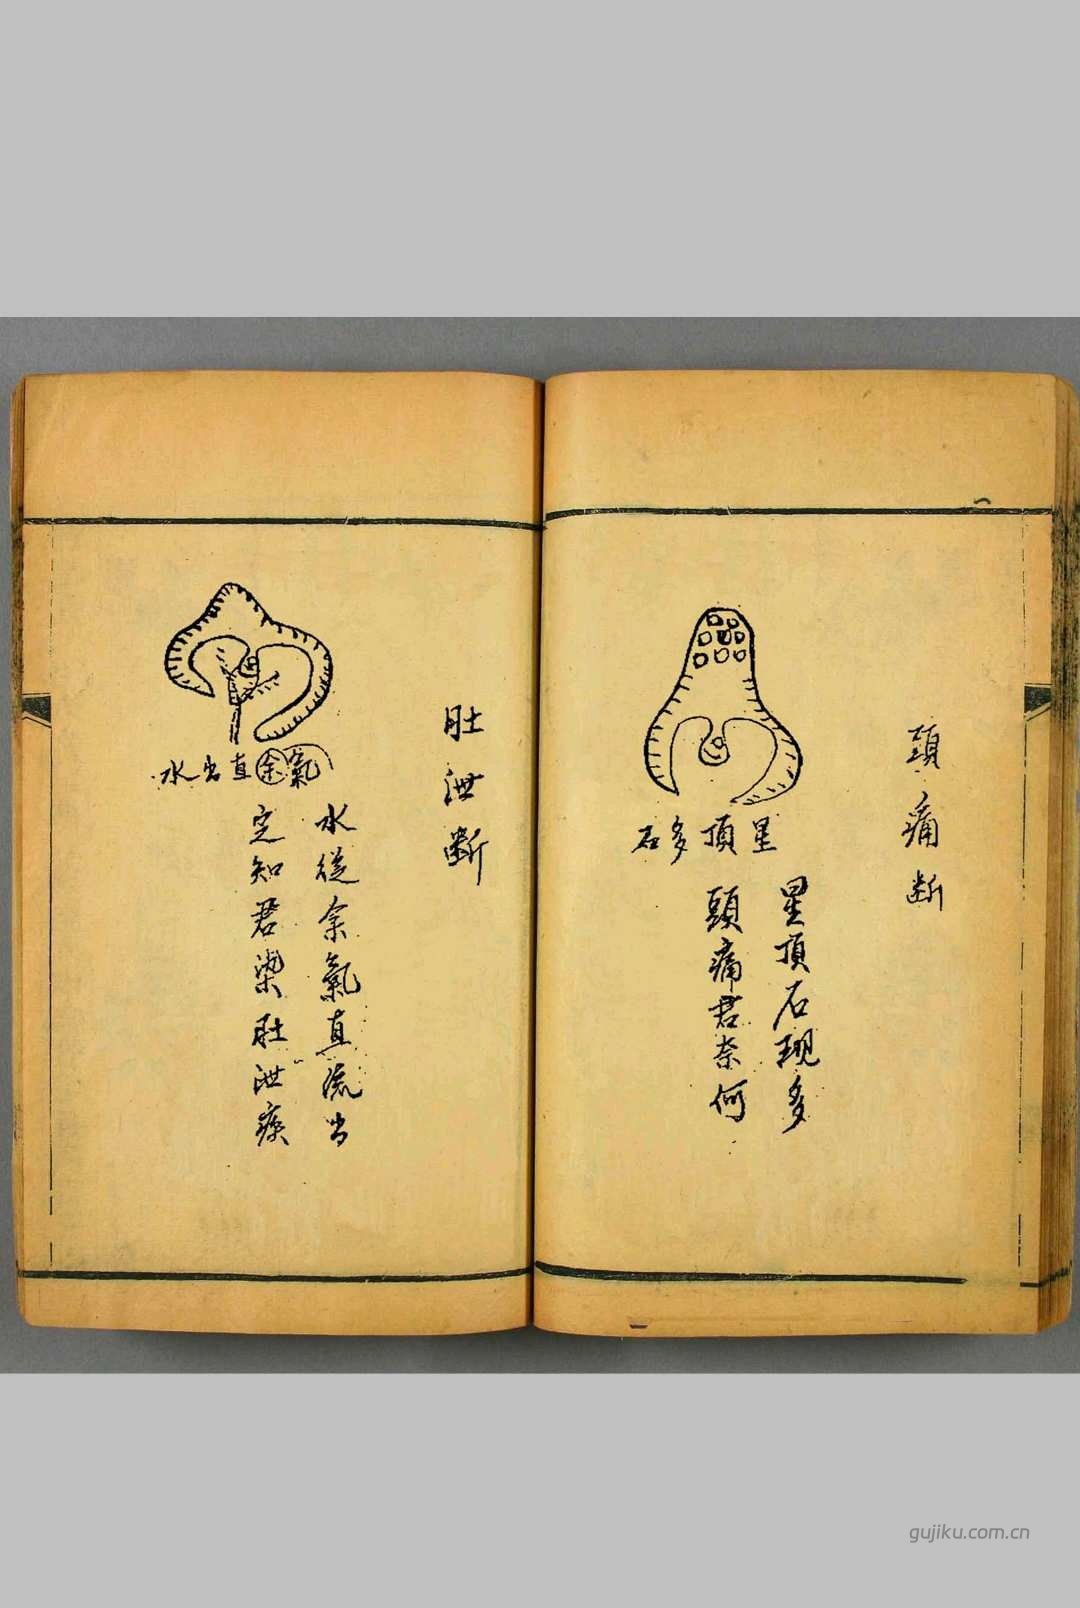 頭痛断
星頂多石
星頂石現多
頭痛君奈何
肚泄断
余氣直出水
水從余氣直流出
定知君染肚泄疾
gujiku.com.cn